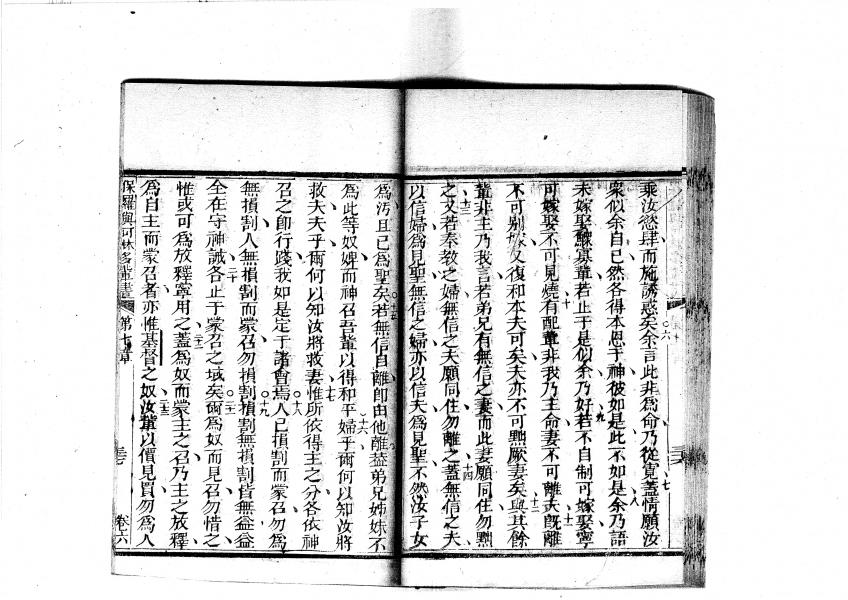 乘汝慾肆而施誘惑矣余言此非爲命乃從寬蓋情願汝
衆似余自已然各得本恩于神彼如是此不如是余乃語
未嫁娶鰥寡輩若止于是似余乃好若不自制可嫁娶寧
可嫁娶不可見燒有配輩非我乃主命妻不可離夫旣離
不可別嫁又復和本夫可矣夫亦不可黜厥妻矣與其餘
輩非主乃我言若弟兄有無信之妻而此妻願同住勿黜
之又若奉教之婦無信之夫願同住勿離之蓋無信之夫
以信婦爲見聖無信之婦亦以信夫爲見聖不然汝子女
爲汚且已爲聖矣若無信自離卽由他離蓋弟兄姊妹不
爲此等奴婢而神召吾輩以得和平婦乎爾何以知汝將
救夫夫乎爾何以知汝將救妻惟所依得主之分各依神
召之卽行踐我如是定于諸會焉人已損割而蒙召勿爲
無損割人無損割而蒙召勿損割損割無損割皆無益益
全在守神誡各止于蒙召之域矣爾爲奴而見召勿惜之
惟或可爲放釋寧用之蓋爲奴而蒙主之召乃主之放釋
爲自主而蒙召者亦惟基督之奴汝輩以價見買勿爲人
保羅與可林多輩書 第七章 卷六